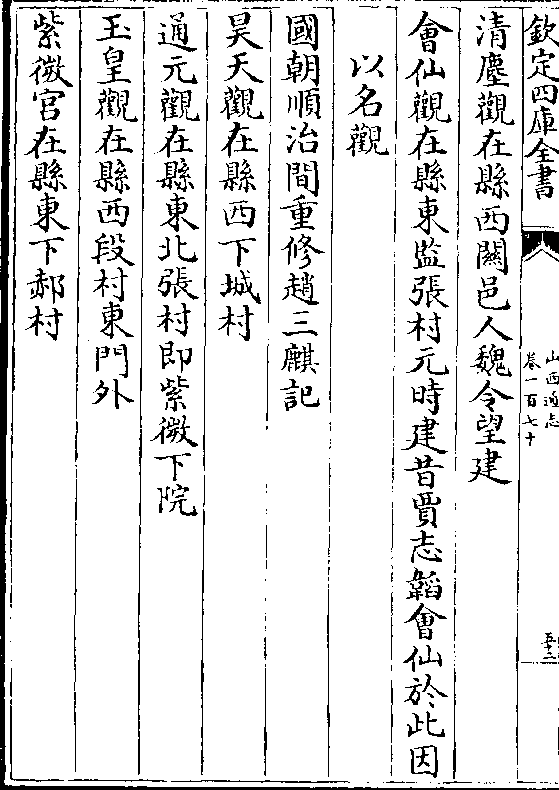 欽定四庫全書
山西通志
卷一百七十
五十二
清塵觀在縣西關邑人魏令望建
會仙觀在縣東監張村元時建昔賈志韜會仙於此因
以名觀
國朝順治間重修趙三麒記
昊天觀在縣西下城村
通元觀在縣東北張村即紫微下院
玉皇觀在縣西段村東門外
紫微宮在縣東下郝村